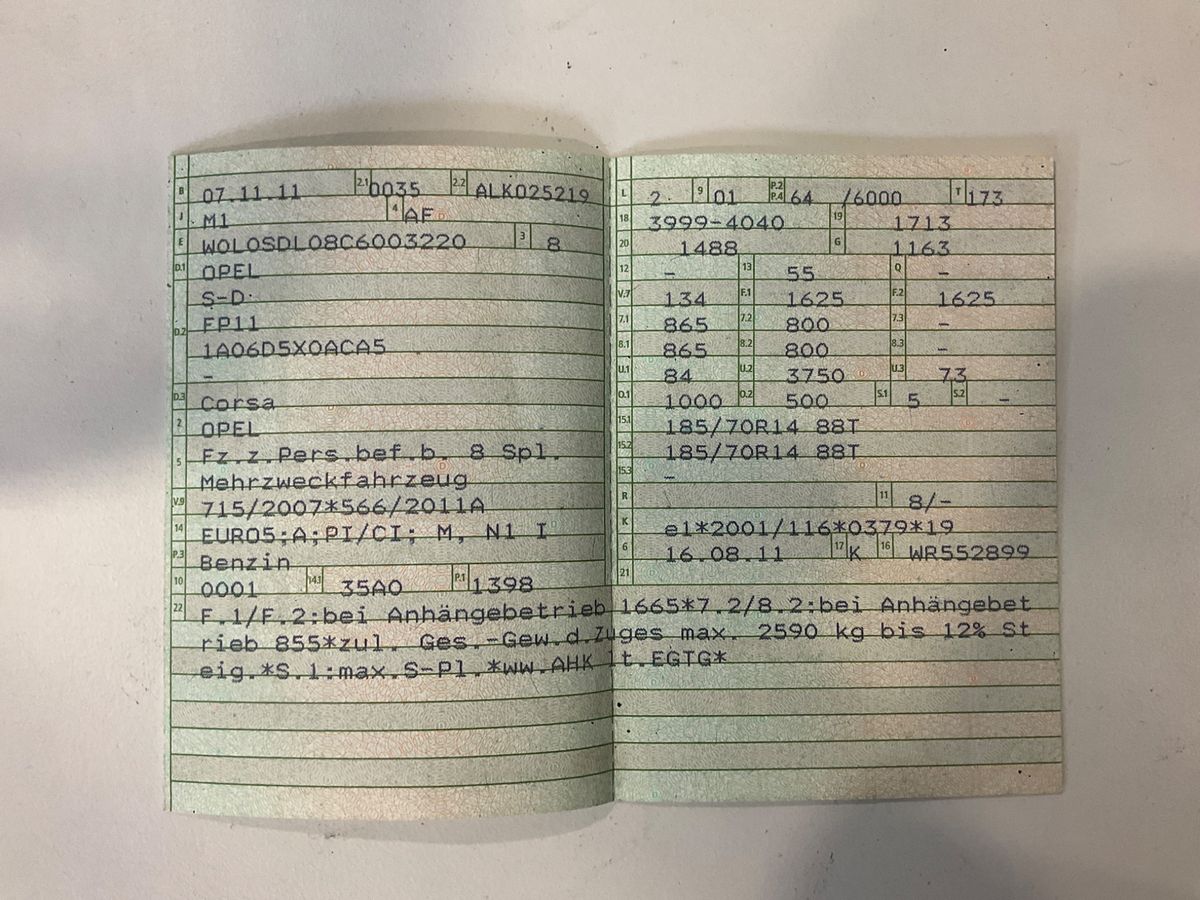 B 07.11.11 2.1 0035 2.2 ALK025219
J M1 4 AF
E W0L0SDL08C6003220 3 8
D.1 OPEL
S-D
D.2 FP11
1A06D5X0ACA5
-
D.3 Corsa
2 OPEL
5 Fz.z.Pers.bef.b. 8 Spl.
Mehrzweckfahrzeug
V.9 715/2007*566/2011A
14 EURO5;A;PI/CI; M, N1 I
P.3 Benzin
10 0001 14.1 35A0 P.1 1398
L 2 9 01 P.2 P.4 64 /6000 T 173
18 3999-4040 19 1713
20 1488 G 1163
12 - 13 55 Q -
V.7 134 F.1 1625 F.2 1625
7.1 865 7.2 800 7.3 -
8.1 865 8.2 800 8.3 -
U.1 84 U.2 3750 U.3 73
O.1 1000 O.2 500 S.1 5 S.2 -
15.1 185/70R14 88T
15.2 185/70R14 88T
15.3 -
R 11 8/-
K e1*2001/116*0379*19
6 16.08.11 17 K 16 WR552899
21
22 F.1/F.2:bei Anhängebetrieb 1665*7.2/8.2:bei Anhängebet
rieb 855*zul. Ges.-Gew.d.Zuges max. 2590 kg bis 12% St
eig.*S.1:max.S-Pl.*ww.AHK lt.EGTG*